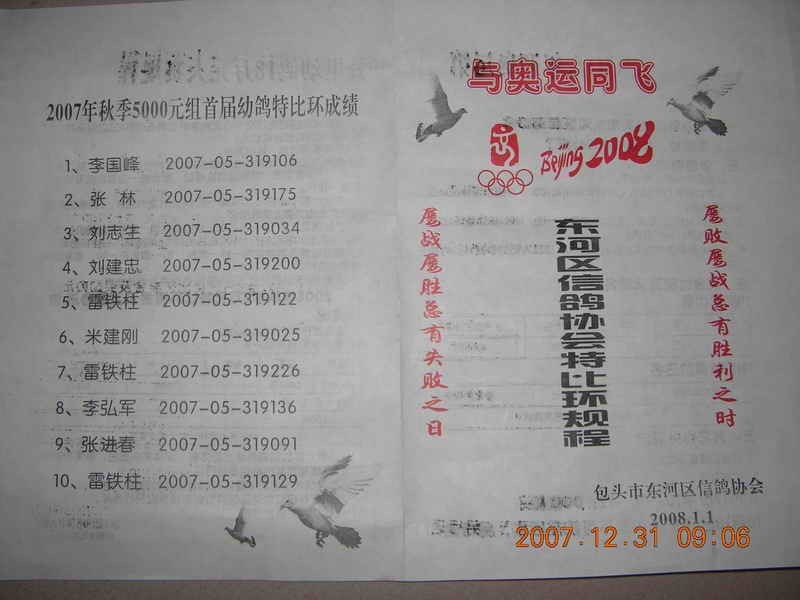 2007年秋季5000元组首届幼鸽特比环成绩
1、李国峰 2007-05-319106
2、张 林 2007-05-319175
3、刘志生 2007-05-319034
4、刘建忠 2007-05-319200
5、雷铁柱 2007-05-319122
6、米建刚 2007-05-319025
7、雷铁柱 2007-05-319226
8、李弘军 2007-05-319136
9、张进春 2007-05-319091
10、雷铁柱 2007-05-319129
与奥运同飞
Beijing 2008
屡败屡战总有胜利之时
东河区信鸽协会特比环规程
屡战屡胜总有失败之日
包头市东河区信鸽协会
2008.1.1
2007.12.31 09:06